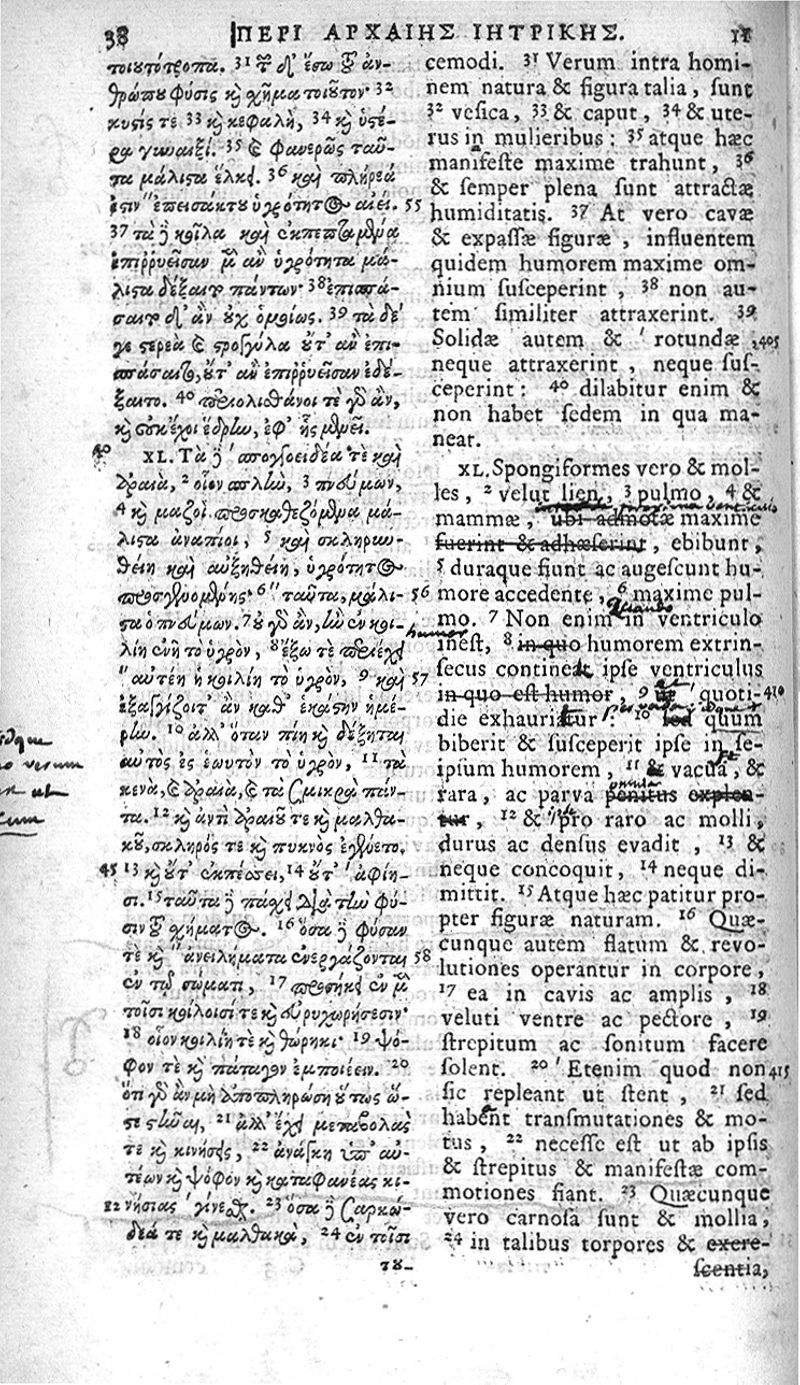 38 ΠΕΡΙ ΑΡΧΑΙΗΣ ΙΗΤΡΙΚΗΣ.
τοιουτότροπα. 31 τοῦ δ' ἔσω τοῦ ἀν-
θρώπου φύσις καὶ σχῆμα τοιοῦτον· 32
κυσίς τε 33 καὶ κεφαλὴ, 34 καὶ ὑστέ-
ρα γυναιξί. 35 καὶ φανερῶς ταῦ-
τα μάλιστα ἕλκει. 36 καὶ πλήρεά
ἐστιν ἐπεισάκτου ὑγρότητος αἰεί. 55
37 τὰ δὲ κοῖλα καὶ ἐκπεπταμένα
ἐπιῤῥυεῖσαν μὲν ἂν ὑγρότητα μά-
λιστα δέξαιτο πάντων· 38 ἐπισπά-
σαιτο δ' ἂν οὐχ ὁμοίως. 39 τὰ δέ
γε στερεὰ καὶ στρογγύλα οὔτ' ἂν ἐπι-
σπάσαιτο, οὔτ' ἂν ἐπιῤῥυεῖσαν ἐδέ-
ξαιτο. 40 περιολισθάνοι τε γὰρ ἂν,
καὶ οὐκ ἔχοι ἕδρην, ἐφ' ἧς μένει.
40 XL. Τὰ δὲ σπογγοειδέα τὲ καὶ
ἀραιὰ, 2 οἷον σπλὴν, 3 πνεύμων,
4 καὶ μαζοὶ προσκαθεζόμενα μά-
λιστα ἀναπίοι, 5 καὶ σκληρυν-
θείη καὶ αὐξηθείη, ὑγρότητος
προσγενομένης· 6 ταῦτα, μάλι- 56
στα ὁ πνεύμων. 7 οὐ γὰρ ἂν, ἢν ἐν κοι-
λίῃ ἐνῇ τὸ ὑγρὸν, 8 ἔξω τὲ περιέχῃ
αὐτέη ἡ κοιλίη τὸ ὑγρὸν, 9 καὶ 57
ἐξαγγίζοιτ' ἂν καθ' ἑκάστην ἡμέ-
ρην. 10 ἀλλ' ὅταν πίῃ καὶ δέξηται
αὐτὸς ἐς ἑωυτὸν τὸ ὑγρὸν, 11 τὰ
κενὰ, καὶ ἀραιὰ, καὶ τὰ σμικρὰ πάν-
τα. 12 καὶ ἀντὶ ἀραιοῦ τε καὶ μαλθα-
κοῦ, σκληρός τε καὶ πυκνὸς ἐγένετο.
45 13 καὶ οὔτ' ἐκπέσσει, 14 οὔτ' ἀφίη-
σι. 15 ταῦτα δὲ πάσχει διὰ τὴν φύ-
σιν τοῦ σχήματος. 16 ὅσα δὲ φύσαν
τὲ καὶ ἀνειλήματα ἐνεργάζονται 58
ἐν τῷ σώματι, 17 προσήκει ἐν μὲν
τοῖσι κοίλοισί τε καὶ εὐρυχωρήσεσιν·
18 οἷον κοιλίῃ τὲ καὶ θώρηκι· 19 ψό-
φον τὲ καὶ πάταγον ἐμποιέειν. 20
ὅτι γὰρ ἂν μὴ ἀποπληρώσῃ οὕτως ὥ-
στε στῆναι, 21 ἀλλ' ἔχῃ μεταβολάς
τε καὶ κινήσεις, 22 ἀνάγκη ὑπ' αὐ-
τέων καὶ ψόφον καὶ καταφανέας κι-
22 νήσιας γίνεσθαι. 23 ὅσα δὲ σαρκώ-
δεά τε καὶ μαλθακὰ, 24 ἐν τοῖσι
του-
cemodi. 31 Verum intra homi-
nem natura & figura talia, sunt
32 vesica, 33 & caput, 34 & ute-
rus in mulieribus: 35 atque hæc
manifeste maxime trahunt, 36
& semper plena sunt attractæ
humiditatis. 37 At vero cavæ
& expassæ figuræ, influentem
quidem humorem maxime om-
nium susceperint, 38 non au-
tem similiter attraxerint. 39
Solidæ autem & rotundæ 405
neque attraxerint, neque sus-
ceperint: 40 dilabitur enim &
non habet sedem in qua ma-
neat.
XL. Spongiformes vero & mol-
les, 2 velut lien, 3 pulmo, 4 &
mammæ, ubi admotæ maxime
fuerint & adhæserint, ebibunt,
5 duraque fiunt ac augescunt hu-
more accedente, 6 maxime pul-
mo. 7 Non enim in ventriculo
inest, 8 in quo humorem extrin-
secus continet ipse ventriculus
in quo est humor, 9 ut quoti- 410
die exhauriatur: 10 sed quum
biberit & susceperit ipse in se-
ipsum humorem, 11 & vacua, &
rara, ac parva penitus explen-
tur, 12 & pro raro ac molli,
durus ac densus evadit, 13 &
neque concoquit, 14 neque di-
mittit. 15 Atque hæc patitur pro-
pter figuræ naturam. 16 Quæ-
cunque autem flatum & revo-
lutiones operantur in corpore,
17 ea in cavis ac amplis, 18
veluti ventre ac pectore, 19
strepitum ac sonitum facere
solent. 20 Etenim quod non 415
sic repleant ut stent, 21 sed
habent transmutationes & mo-
tus, 22 necesse est ut ab ipsis
& strepitus & manifestæ com-
motiones fiant. 23 Quæcunque
vero carnosa sunt & mollia,
24 in talibus torpores & exere-
scentia,